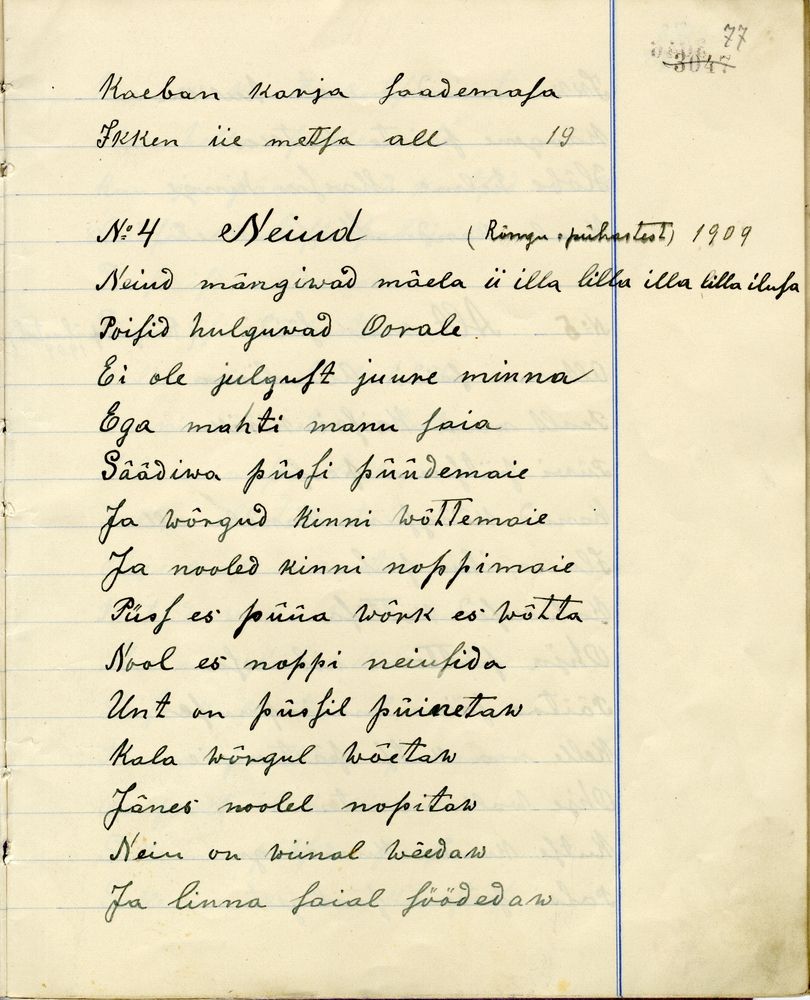 77
3047
Kaeban karja saademasa
Ikken iie metsa all 19
No 4 Neiud (Rõngu pühastest) 1909
Neiud mängiwad mäela ii illa lilla illa lilla ilusa
Poisid hulguwad Oorale
Ei ole julgust juure minna
Ega mahti manu saia
Säädiwa püssi püüdemaie
Ja wõrgud kinni wõttemaie
Ja nooled kinni noppimaie
Püss es püüa wõrk es wõtta
Nool es noppi neiusida
Unt on püssil püinetaw
Kala wõrgul wõetaw
Jänes noolel nopitaw
Neiu on wiinal wëedaw
Ja linna saial söödedaw